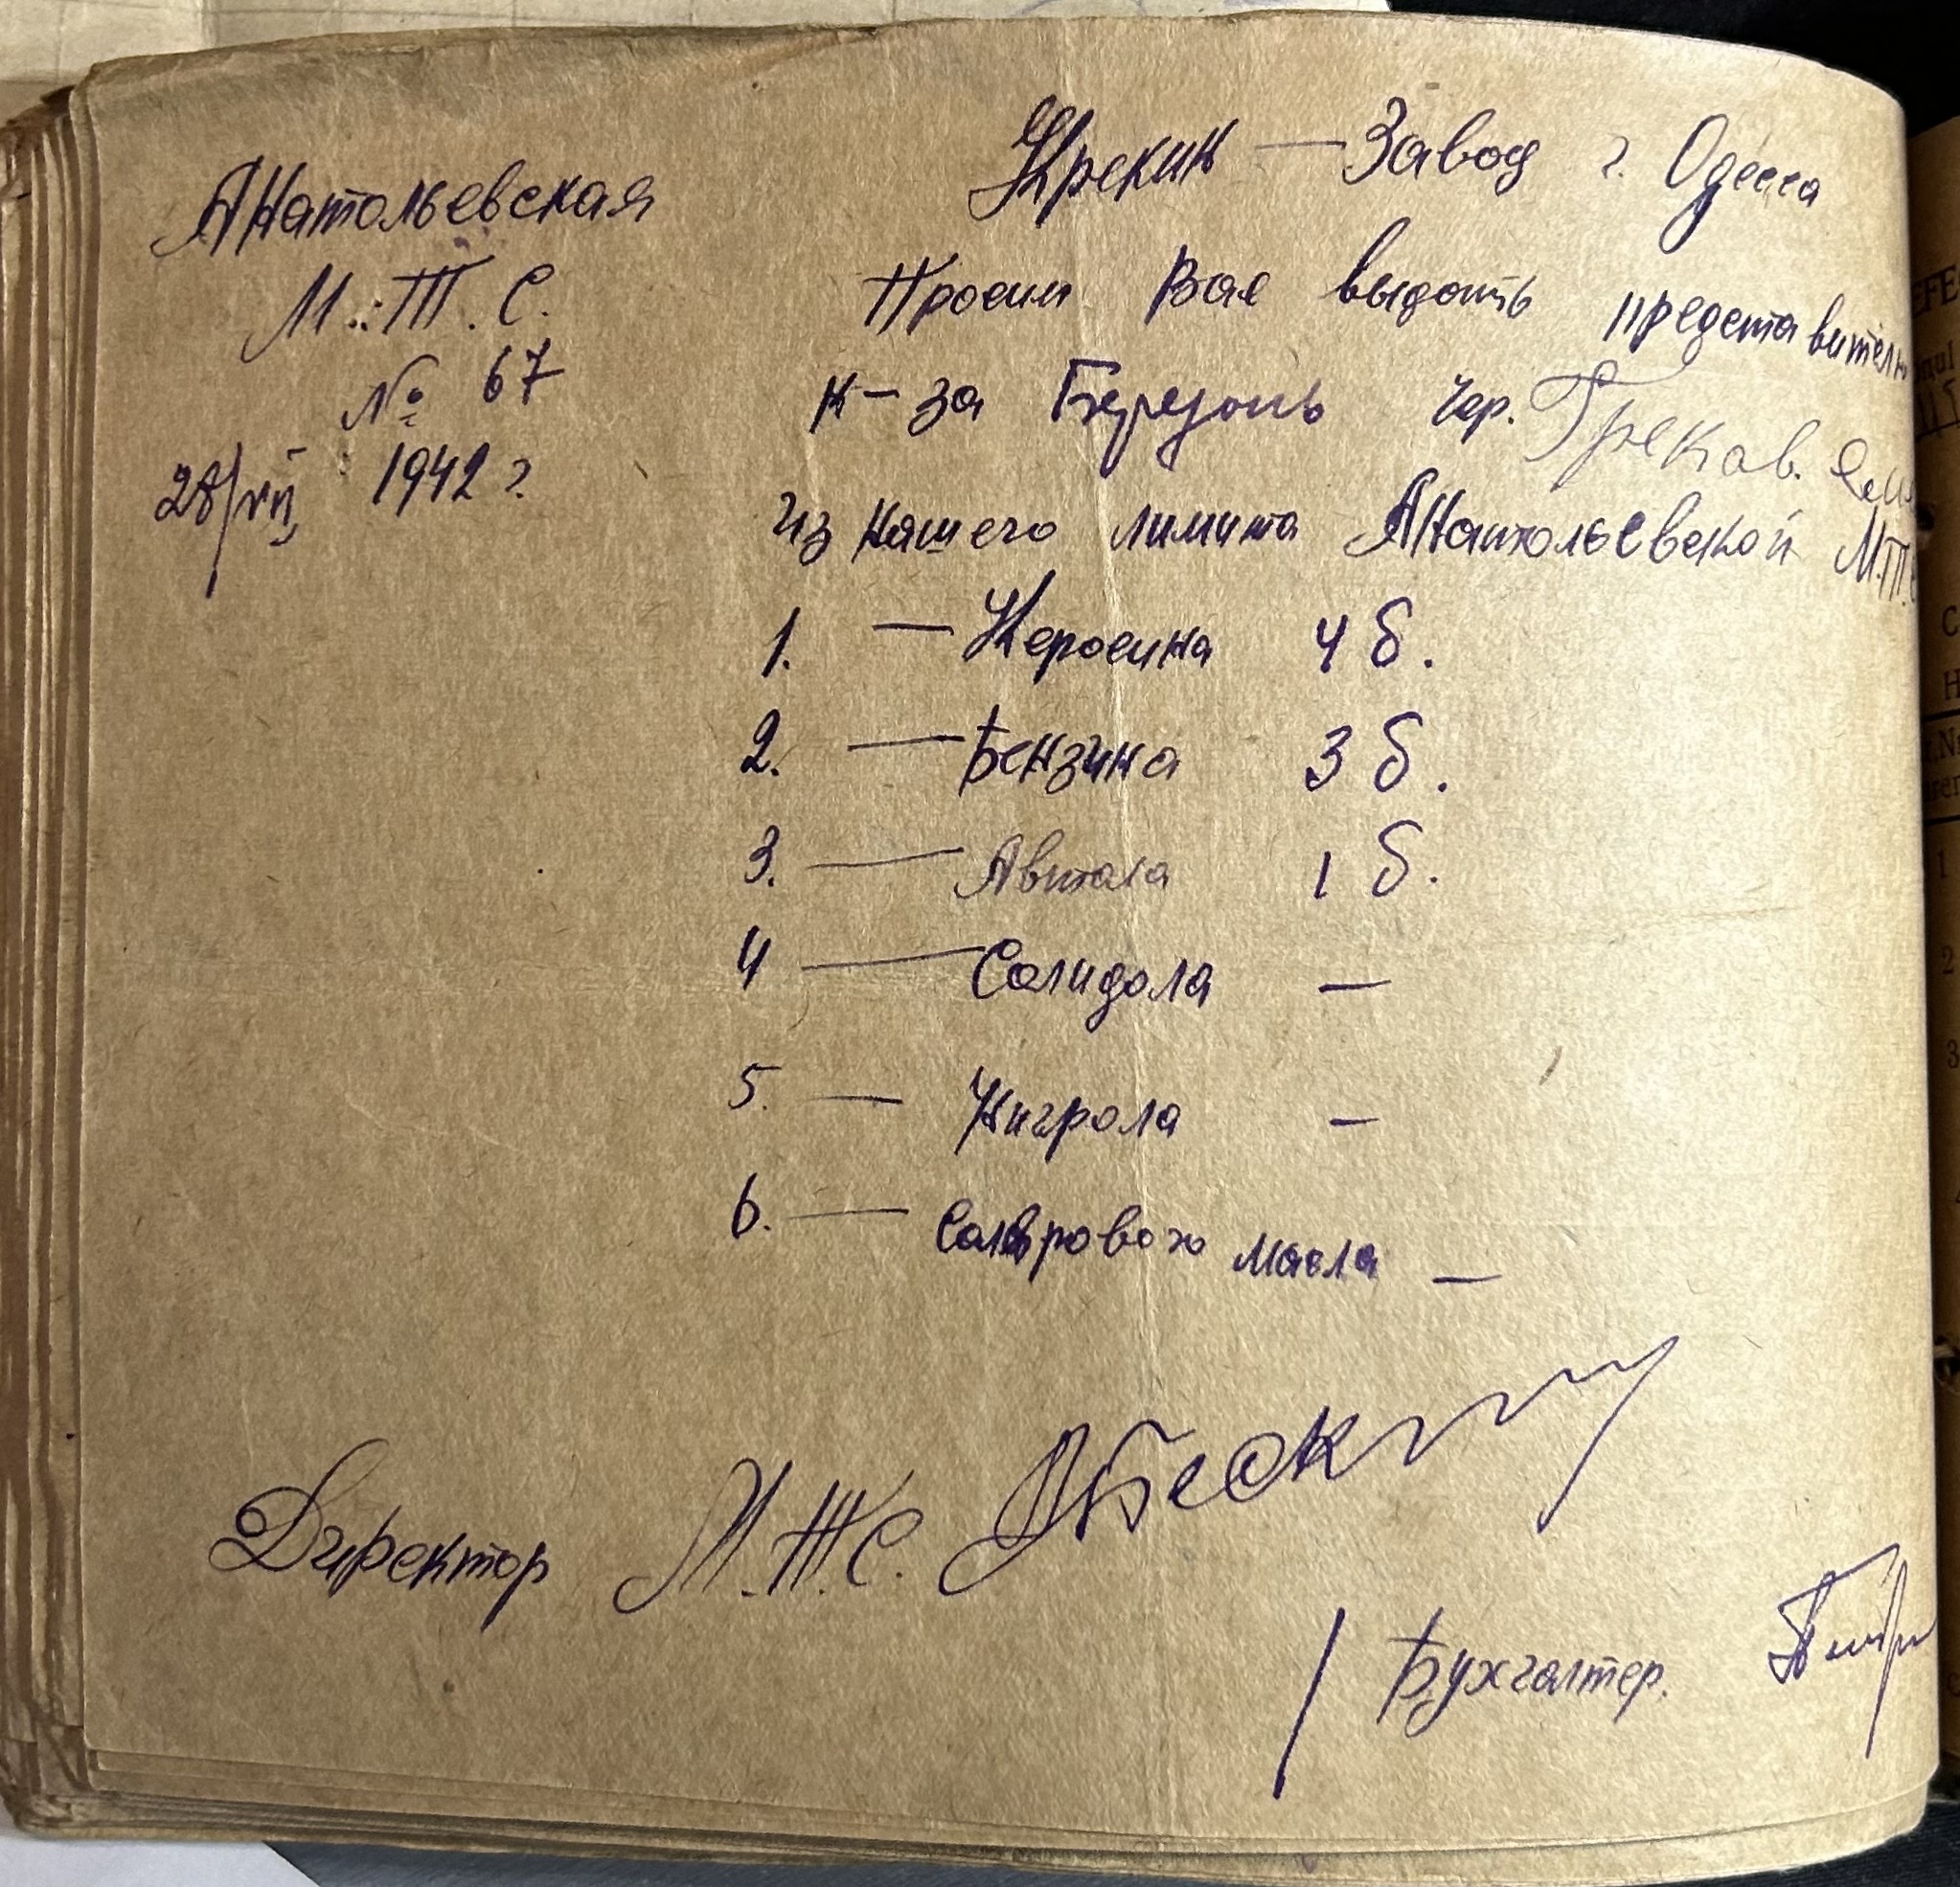 Анатольевская
М.Т.С.
№ 67
28/VII 1942 г.
Крекин — Завод г. Одесса
Просим Вас выдать представителю
к-за Березань чер. Греков.
из нашего лимита Анатольевской М.Т.
1. — Керосина 4 б.
2. — Бензина 3 б.
3. — Автола 1 б.
4 — Солидола —
5. — Нигрола —
6. — Солярового масла —
Директор М.Т.С.
Бухгалтер.